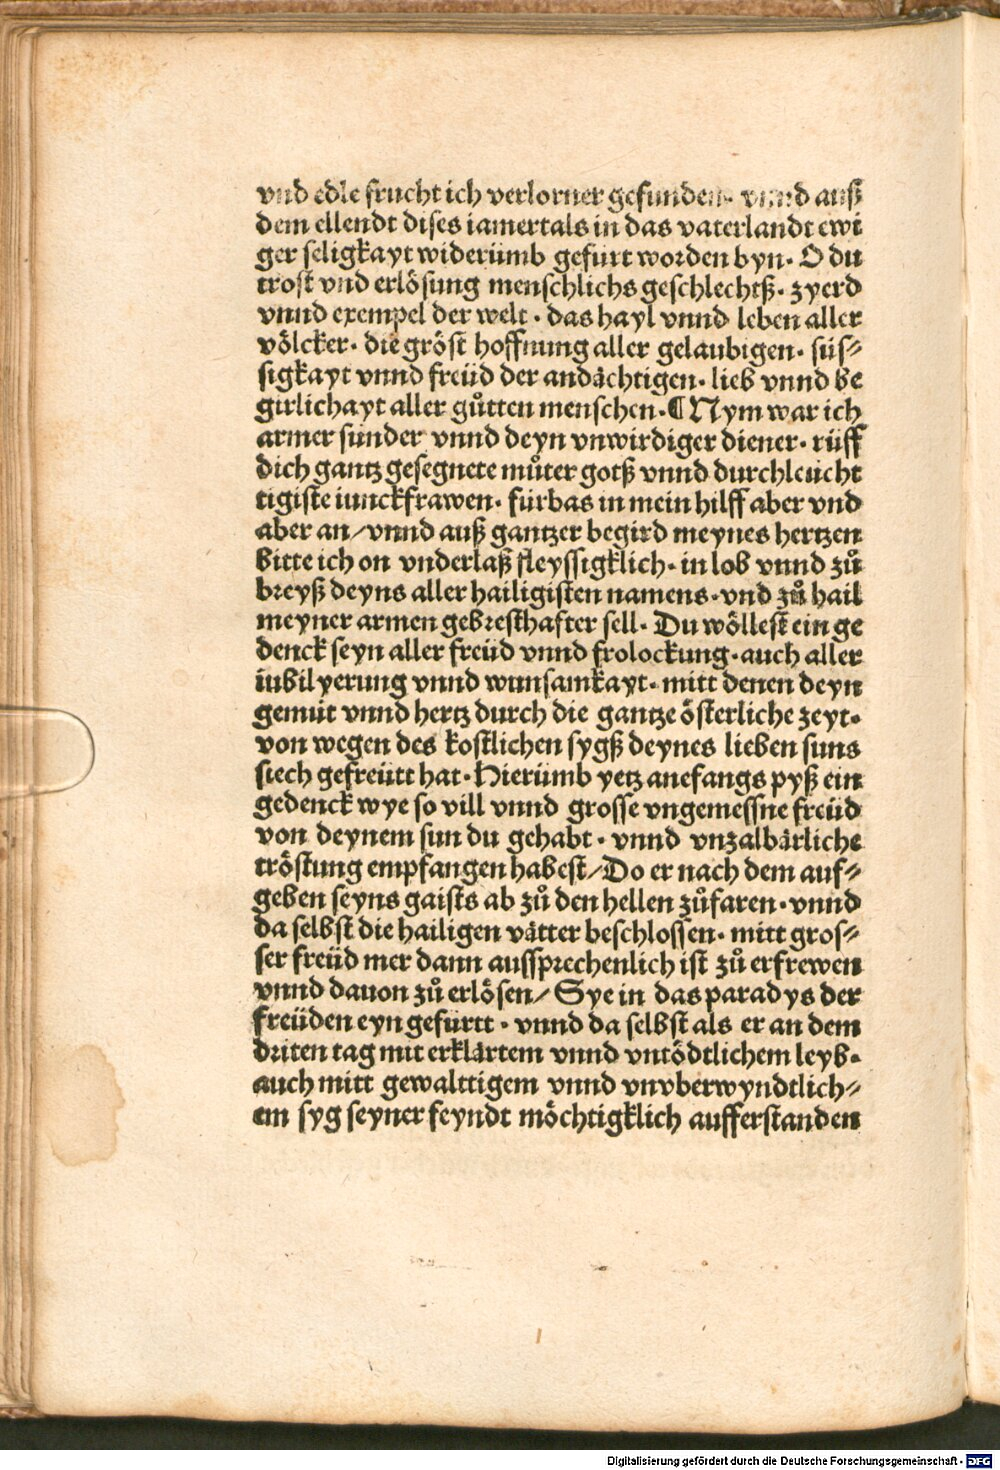 vnd edle frucht ich verlorner gefunden· vnnd auß
dem ellendt dises iamertals in das vaterlandt ewi
ger seligkayt widerümb gefürt worden byn· O du
trost vnd erlösung menschlichs geschlechtß· zyerd
vnnd exempel der welt · das hayl vnnd leben aller
völcker· die gröst hoffnung aller gelaubigen· süs⸗
sigkayt vnnd freüd der andächtigen· lieb vnnd be
girlichayt aller gůtten menschen·¶ Nym war ich
armer sünder vnnd deyn vnwirdiger diener· rüff
dich gantz gesegnete můter gotß vnnd durchleücht
tigiste iunckfrawen· fürbas in mein hilff aber vnd
aber an/vnnd auß gantzer begird meynes hertzen
bitte ich on vnderlaß fleyssigklich· in lob vnnd zů
breyß deyns aller hailigisten namens·vnd zů hail
meyner armen gebresthafter sell· Du wöllest ein ge
denck seyn aller freüd vnnd frolockung·auch aller
iubilyerung vnnd wunsamkayt· mitt denen deyn
gemüt vnnd hertz durch die gantze österliche zeyt·
von wegen des kostlichen sygß deynes lieben suns
siech gefreütt hat· Hierümb yetz anefangs pyß ein
gedenck wye so vill vnnd grosse vngemessne freüd
von deynem sun du gehabt · vnnd vnzalbärliche
tröstung empfangen habest/Do er nach dem auf⸗
geben seyns gaists ab zů den hellen zůfaren·vnnd
da selbst die hailigen vätter beschlossen· mitt gros⸗
ser freüd mer dann aussprechenlich ist zů erfrewen
vnnd dauon zů erlösen/ Sye in das paradys der
freüden eyn gefürtt · vnnd da selbst als er an dem
driten tag mit erklärtem vnnd vntödtlichem leyb·
auch mitt gewalttigem vnnd vnvberwyndtlich⸗
em syg seyner feyndt möchtigklich aufferstanden
Digitalisierung gefördert durch die Deutsche Forschungsgemeinschaft - DFG